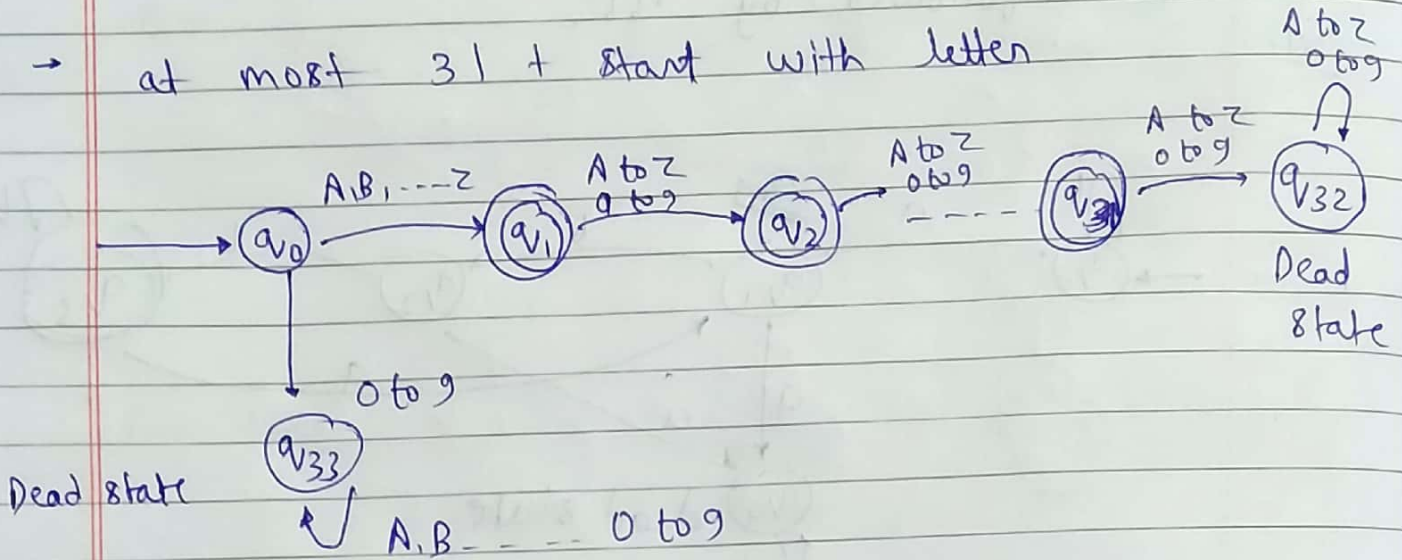 → at most 31 + start with letter
A to Z
0 to 9
A,B,----Z
A to Z
0 to 9
A to Z
0 to 9
A to Z
0 to 9
q0
q1
q2
----
q32
Dead
state
0 to 9
q33
Dead state
A,B----- 0 to 9